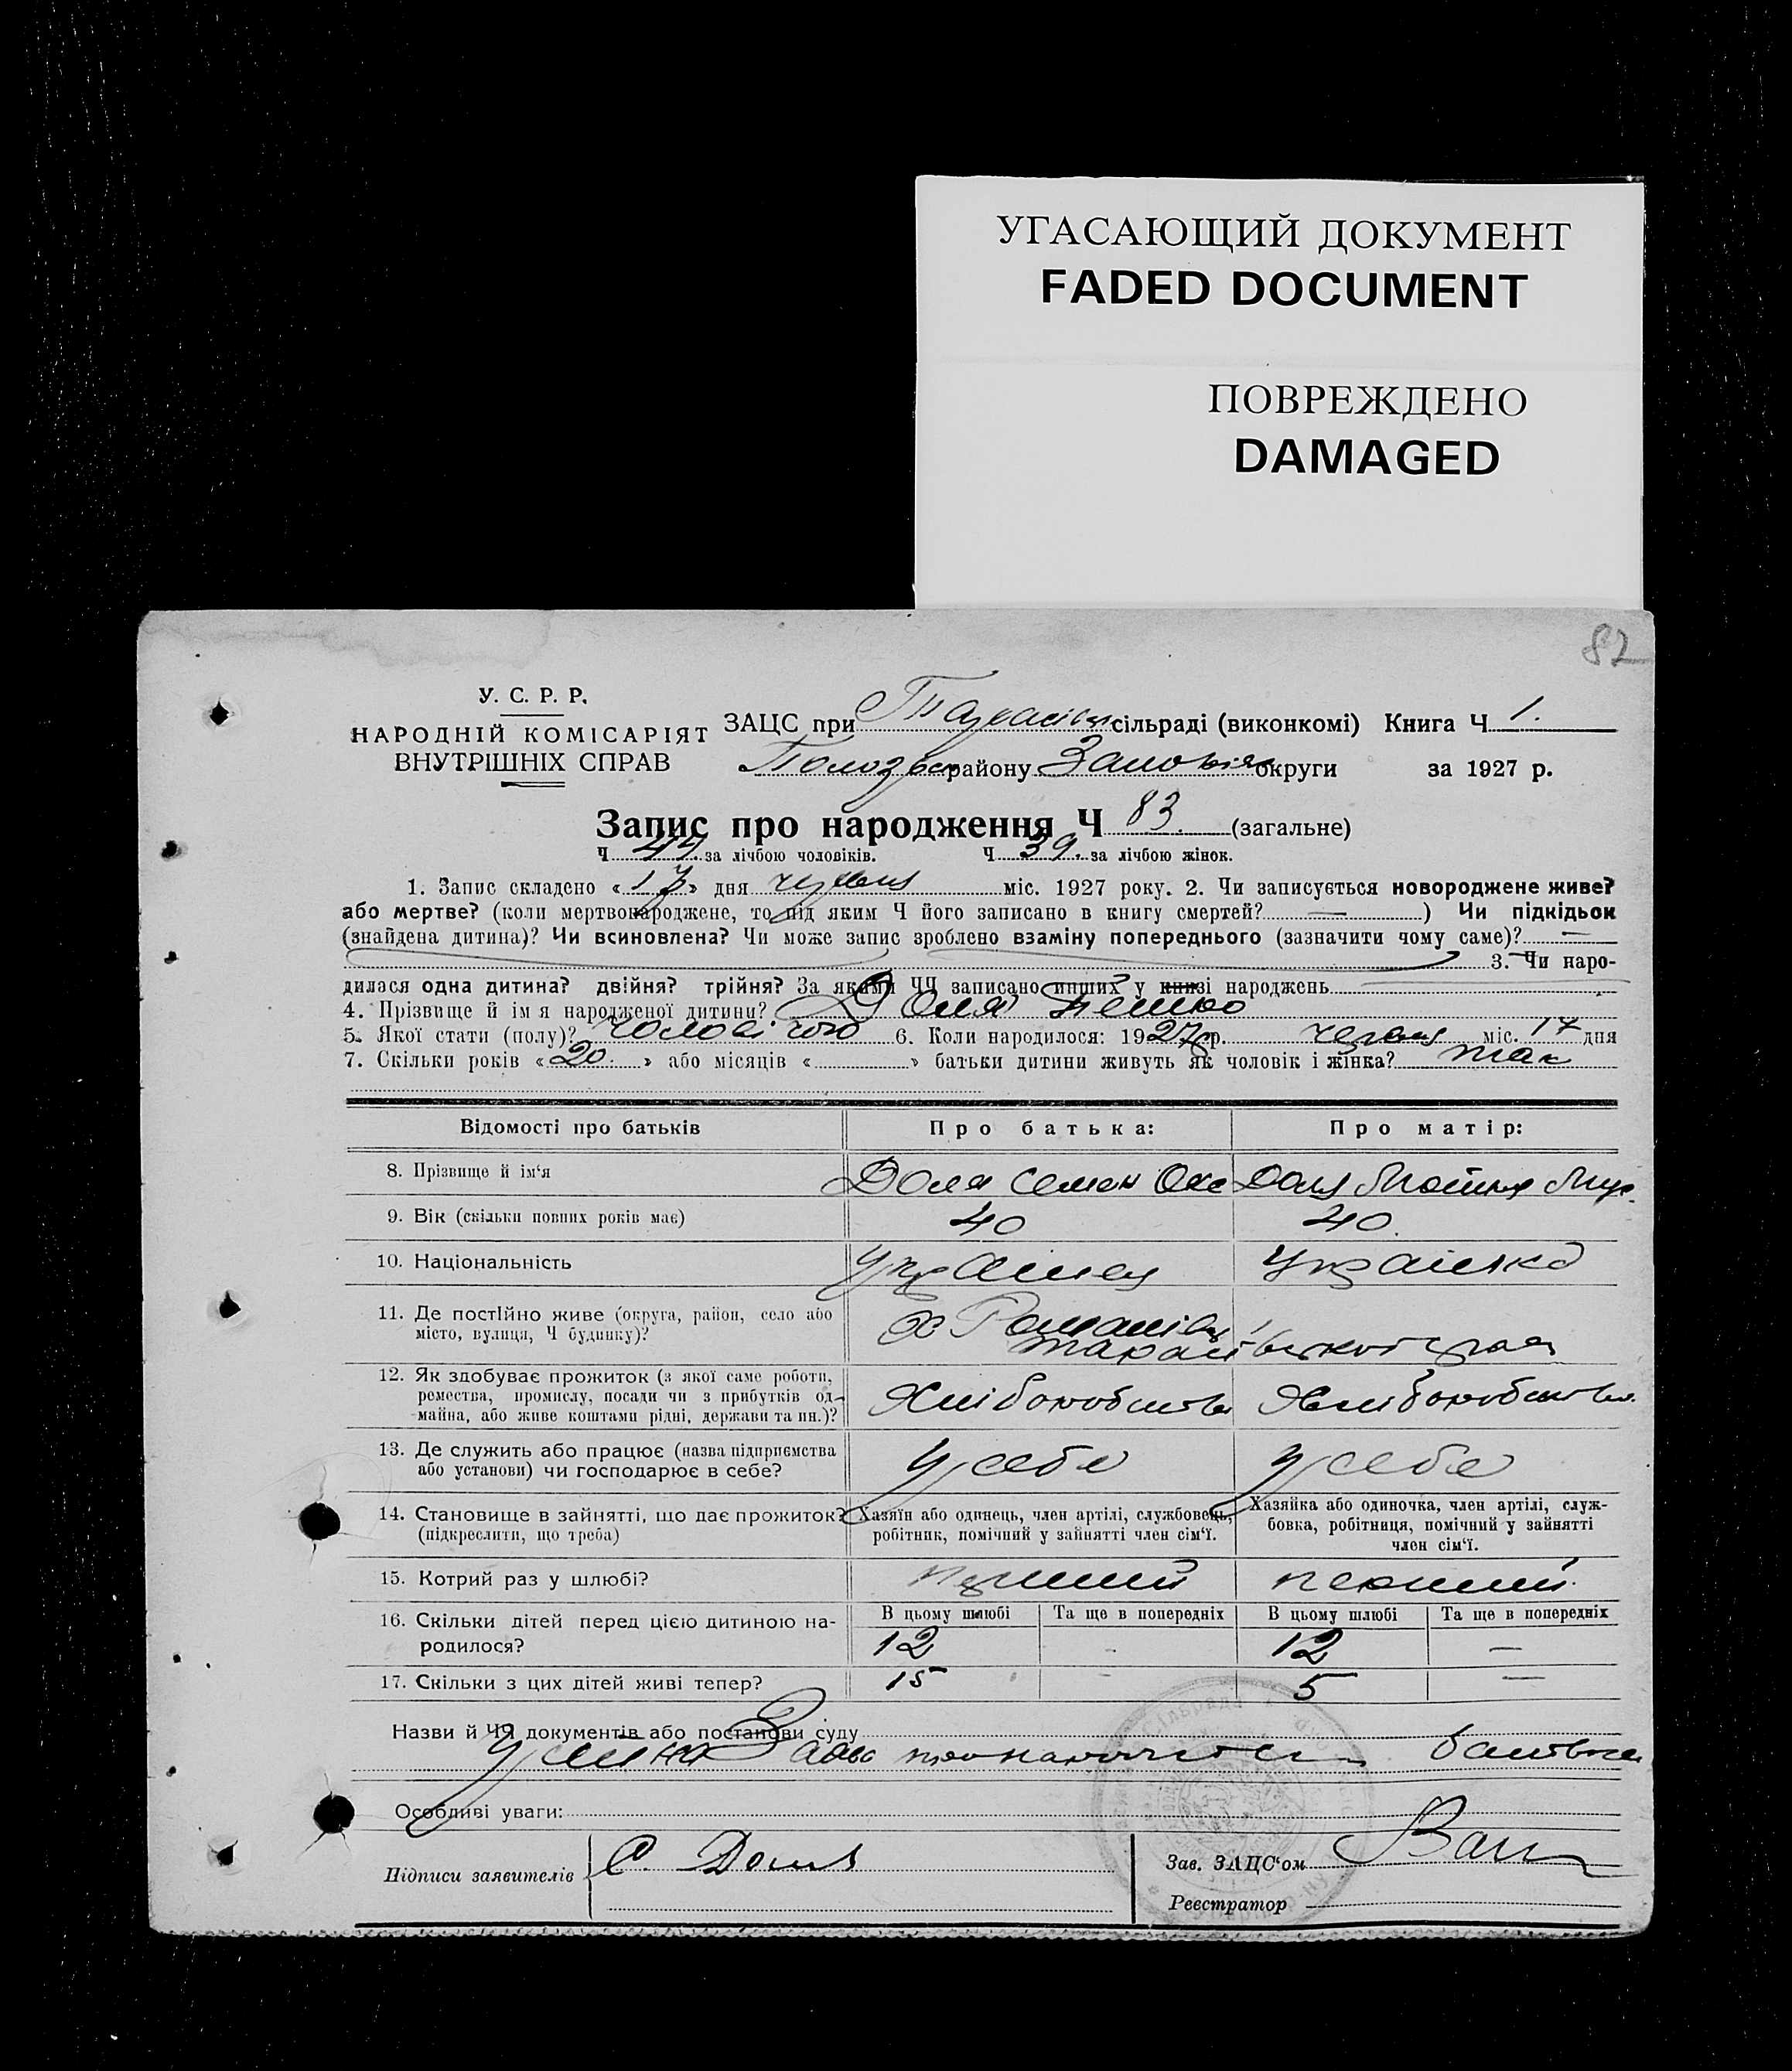 УГАСАЮЩИЙ ДОКУМЕНТ
FADED DOCUMENT
ПОВРЕЖДЕНО
DAMAGED
82
У. С. Р. Р.
НАРОДНІЙ КОМІСАРІЯТ
ВНУТРІШНІХ СПРАВ
ЗАЦС при сільраді (виконкомі) Книга Ч 1.
району округи за 1927 р.
Запис про народження Ч 83. (загальне)
Ч 44. за лічбою чоловіків. Ч 39. за лічбою жінок.
1. Запис складено «17» дня червня міс. 1927 року. 2. Чи записується новороджене живе?
або мертве? (коли мертвонароджене, то під яким Ч його записано в книгу смертей? — ) Чи підкідьок
(знайдена дитина)? Чи всиновлена? Чи може запис зроблено взаміну попереднього (зазначити чому саме)? —
3. Чи наро-
дилася одна дитина? двійня? трійня? За якими ЧЧ записано инших у книзі народжень
4. Прізвище й ім я народженої дитини? Доля
5. Якої стати (полу)? чоловічого 6. Коли народилося: 1927 р. червня міс. 17 дня
7. Скільки років «20.» або місяців « » батьки дитини живуть як чоловік і жінка? так
Відомості про батьків Про батька: Про матір:
8. Прізвище й ім‘я Доля Семен Доля
9. Вік (скільки повних років має) 40 40.
10. Національність Українец Українка
11. Де постійно живе (округа, район, село або
місто, вулиця, Ч будинку)?
12. Як здобуває прожиток (з якої саме роботи,
ремества, промислу, посади чи з прибутків од-
майна, або живе коштами рідні, держави та ин.)? Хліборобство Хліборобство
13. Де служить або працює (назва підприємства
або установи) чи господарює в себе? У себе У себе
14. Становище в зайнятті, що дає прожиток?
(підкреслити, що треба)
Хазяїн або одинець, член артілі, службовець,
робітник, помічний у зайнятті член сім‘ї.
Хазяйка або одиночка, член артілі, служ-
бовка, робітниця, помічний у зайнятті
член сім‘ї.
15. Котрий раз у шлюбі? перший перший
16. Скільки дітей перед цією дитиною на-
родилося?
В цьому шлюбі Та ще в попередніх В цьому шлюбі Та ще в попередніх
12 - 12 —
17. Скільки з цих дітей живі тепер? 15 - 5 —
Назви й ЧЧ документів або постанови суду
Особливі уваги:
Підписи заявителів С. Доля
Зав. ЗАЦС‘ом
Реєстратор